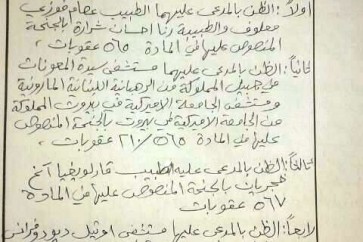 أولاً: الظن بالمدعى عليهما الطبيب عصام فوزي
معلوف والطبيبة رنا احسان شرارة بالجنحة
المنصوص عليها في المادة ٥٦٥ عقوبات.
ثانياً: الظن بالمدعى عليهما مستشفى سيدة المعونات
في جبيل المملوكة من الرهبانية اللبنانية المارونية
ومستشفى الجامعة الاميركية في بيروت المملوكة
من الجامعة الاميركية في بيروت بالجنحة المنصوص
عليها في المادة ٢١٠/٥٦٥ عقوبات.
ثالثاً: الظن بالمدعى عليه الطبيب
بالجنحة المنصوص عليها في المادة
٥٦٧ عقوبات
رابعاً: الظن بالمدعى عليها مستشفى اوتيل ديو دو فرانس